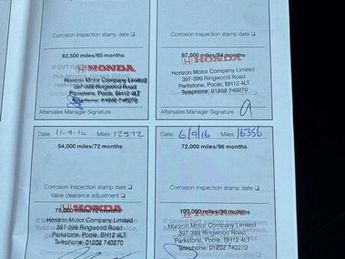 Corrosion inspection stamp date
Corrosion inspection stamp date
62,500 miles/60 months
87,500 miles/84 months
HONDA
HONDA
Horizon Motor Company Limited
397-399 Ringwood Road
Parkstone, Poole, BH12 4LT
Telephone: 01202 740270
Horizon Motor Company Limited
397-399 Ringwood Road
Parkstone, Poole, BH12 4LT
Telephone: 01202 740270
Aftersales Manager Signature
Aftersales Manager Signature
Date: 11-9-14 Miles: 12572
Date: 6/9/16 Miles: 16356
54,000 miles/72 months
72,000 miles/96 months
Corrosion inspection stamp date
Valve clearance adjustment
Corrosion inspection stamp date
HONDA
75,000 miles/72 months
100,000 miles/96 months
Horizon Motor Company Limited
397-399 Ringwood Road
Parkstone, Poole, BH12 4LT
Telephone: 01202 740270
Horizon Motor Company Limited
397-399 Ringwood Road
Parkstone, Poole, BH12 4LT
Telephone: 01202 740270